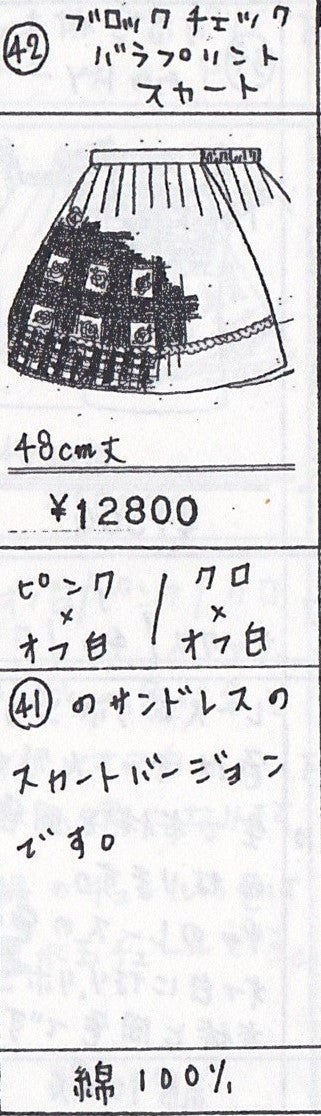 ㊷ ブロックチェック
バラプリント
スカート
48cm丈
¥12800
ピンク
×
オフ白
/
クロ
×
オフ白
㊶ のサンドレスの
スカートバージョン
です。
綿 100%